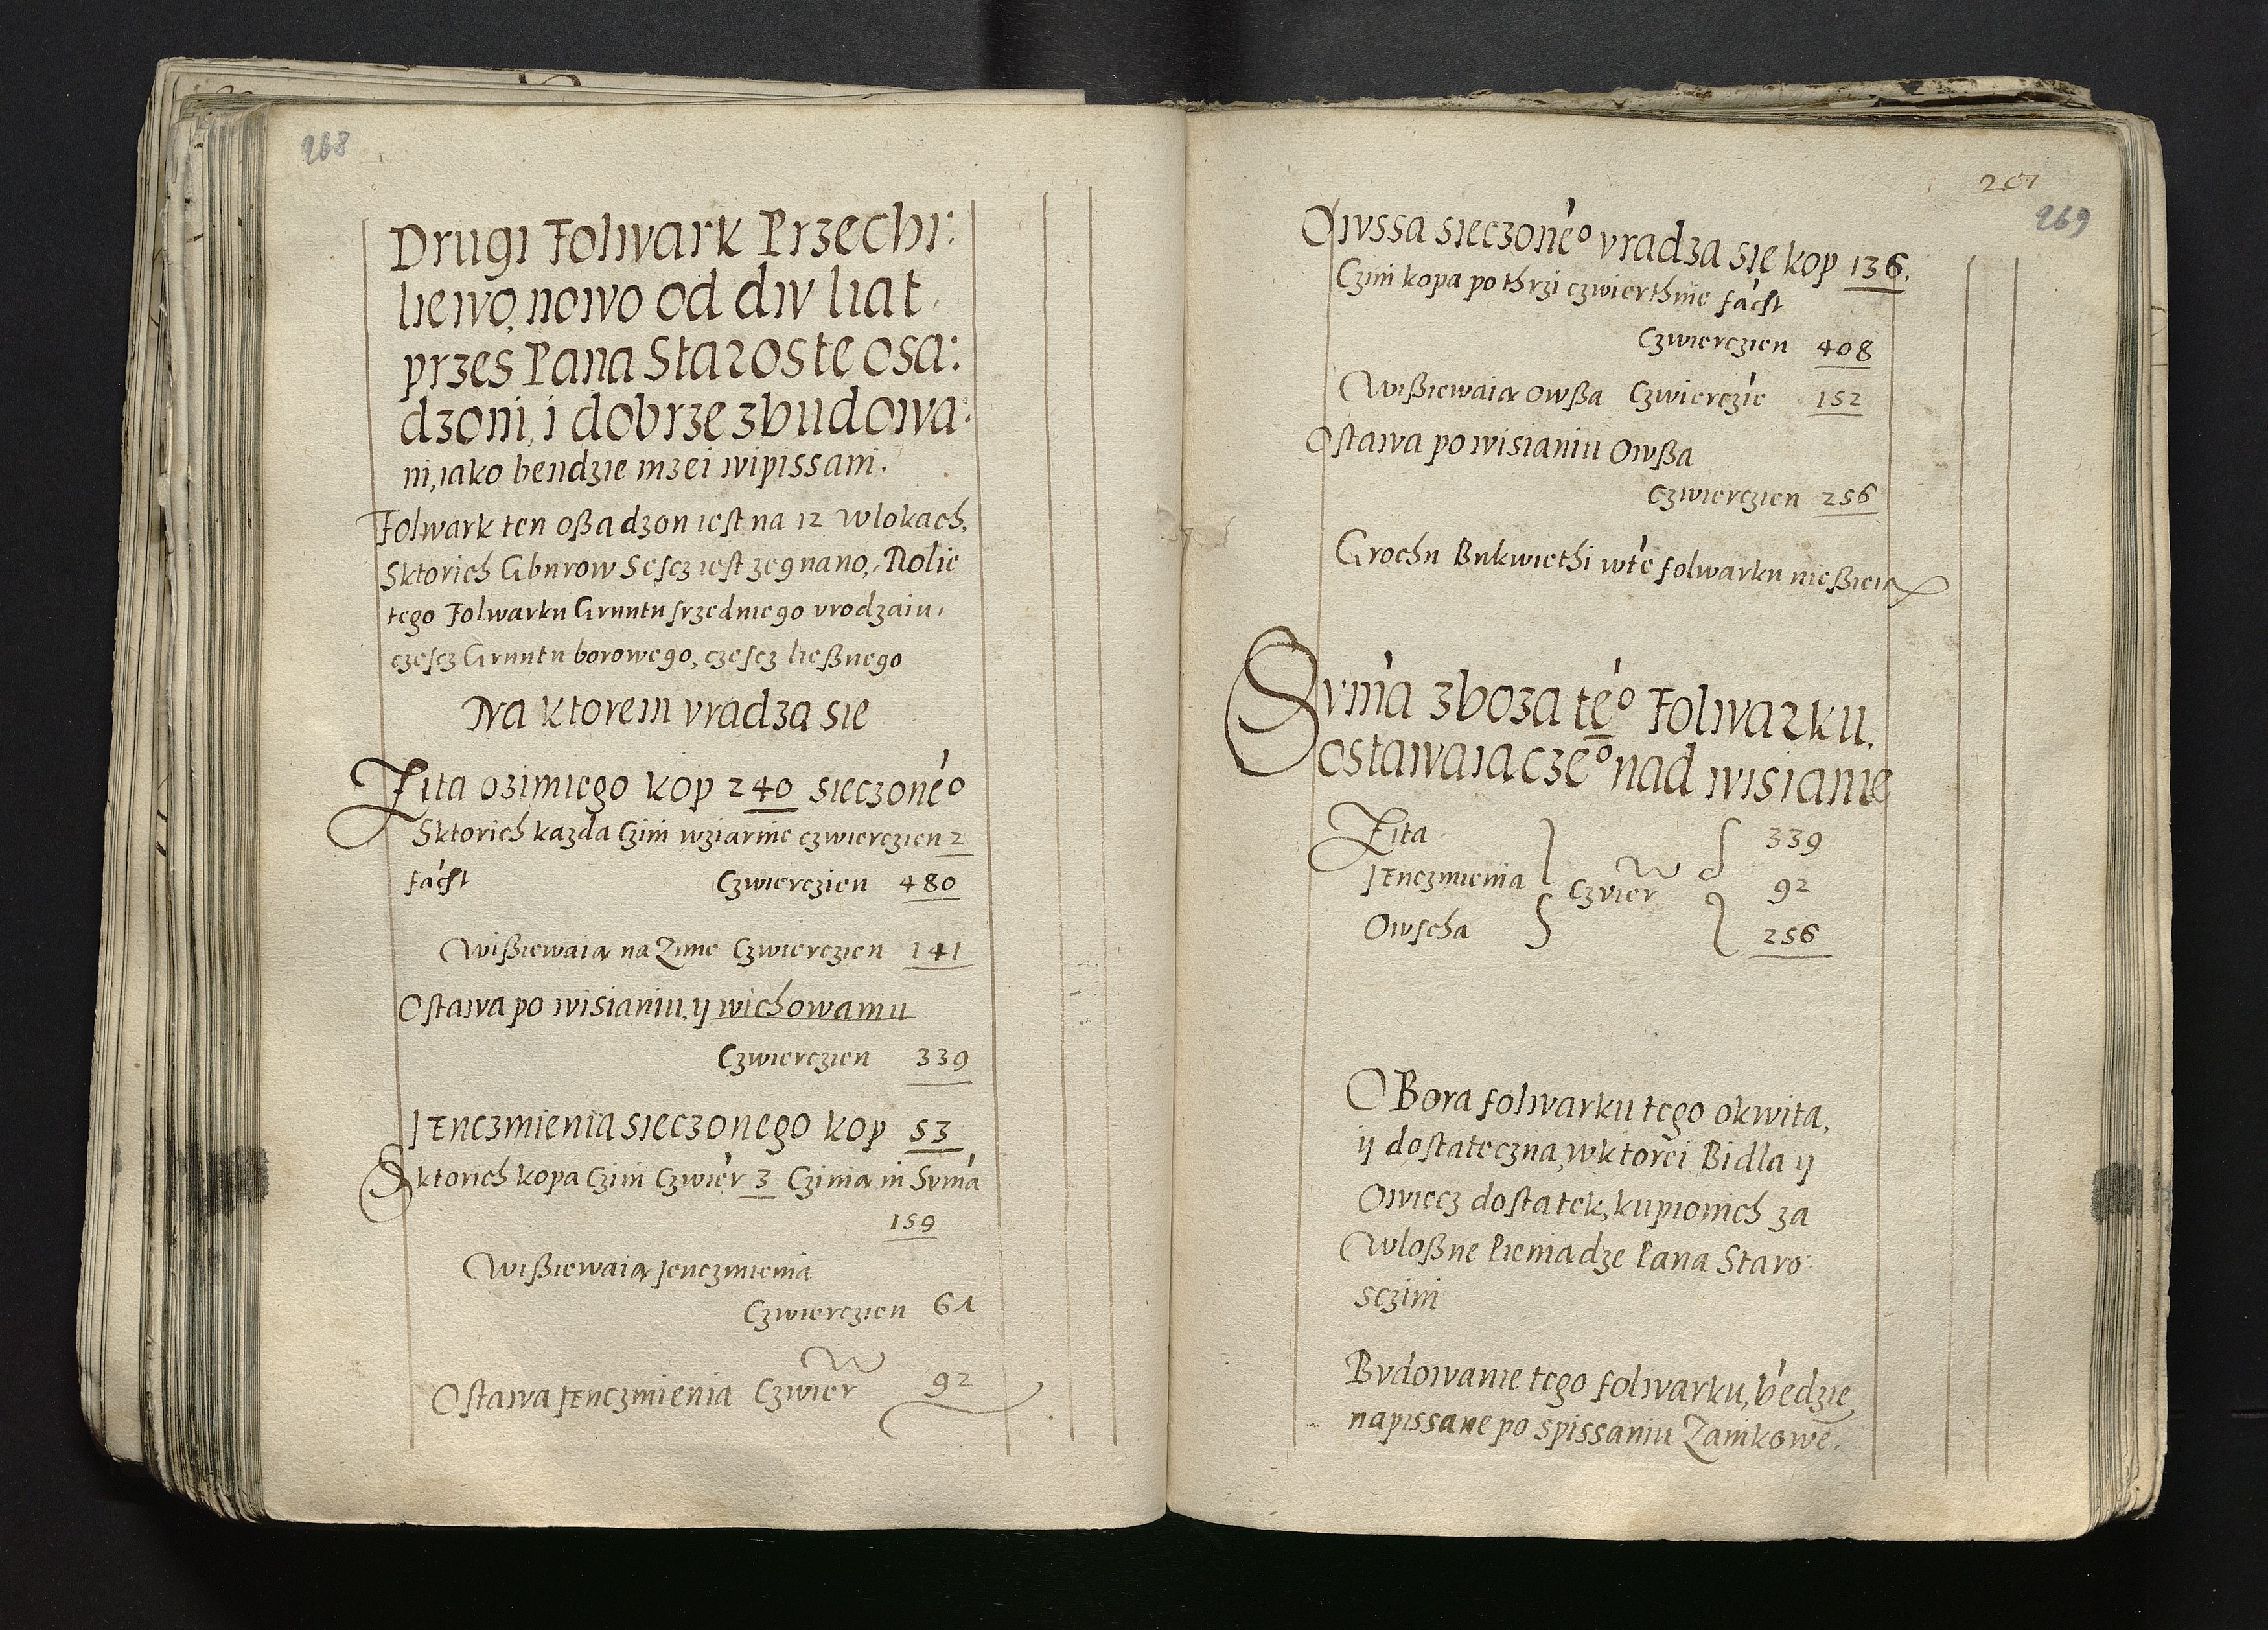 268
Drugi Folwark Przechi:
liewo, nowo od dw liat
przes Pana Staroste osa:
dzoni, i dobrze zbudowa:
ni, iako bendzie mzei wipissani.
Folwark ten oßadzon iest na 12 wlokach,
Sktorich Gburow Sescz iest zegnano, Rolie
tego Folwarku Gruntu srzedniego vrodzaiu,
czescz Gruntu borowego, czescz ließnego
Na ktorem vradza sie
Zita ozimiego kop 240 sieczoneo
Sktorich kazda Czini wziarnie czwierczien 2
facst Czwierczien 480
Wißiewaią na Zime Czwierczien 141
Ostawa po wisianiu, ij wichowaniu
Czwierczien 339
Jenczmienia sieczonego kop 53
Sktorich kopa Czini Czwier 3 Czinia in Suma
159
Wißiewaią Jenczmienia
Czwierczien 61
Ostawa Jenczmienia Czwier 92
207
269
Owssa sieczoneo vradza się kop 136.
Czini kopa po thrzi czwierthnie facst
Czwierczien 408
Wißiewaią owßa Czwierczie 152
Ostawa po wisianiu Owßa
Czwierczien 256
Grochu Bukwiethi wte folwarku nießieią
Suma zboza teo Folwarku.
ostawaiaczeo nad wisianie
Zita 339
Jenczmienia Czwier 92
Owscha 256
Obora folwarku tego okwita,
ij dostateczna, wktorei Bidla ij
Owiecz dostatek, kupionich za
wloßne Pieniadze Pana Staro
sczini
Budowanie tego folwarku, będzie
napissane po spissaniu Zamkowe.